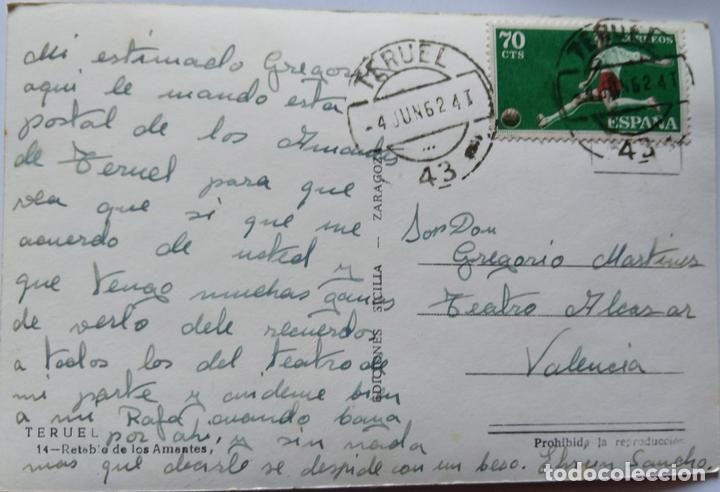 Mi estimado Gregorio
aqui le mando esta
postal de los Amantes
de Teruel para que
vea que si que me
acuerdo de usted y
que tengo muchas ganas
de verlo dele recuerdos
a todos los del teatro de
mi parte y cuideme bien
a mi Rafa cuando baya
por ahi, y sin nada
mas que decirle se despide con un beso.
TERUEL
14—Retablo de los Amantes,
EDICIONES SICILIA — ZARAGOZA
TERUEL
-4 JUN 62 4T
43
70
CTS
CORREOS
ESPAÑA
TERUEL
JUN 62 4T
43
Don
Gregorio Martines
Teatro Alcazar
Valencia
Prohibida la reproducción
todocoleccion.net